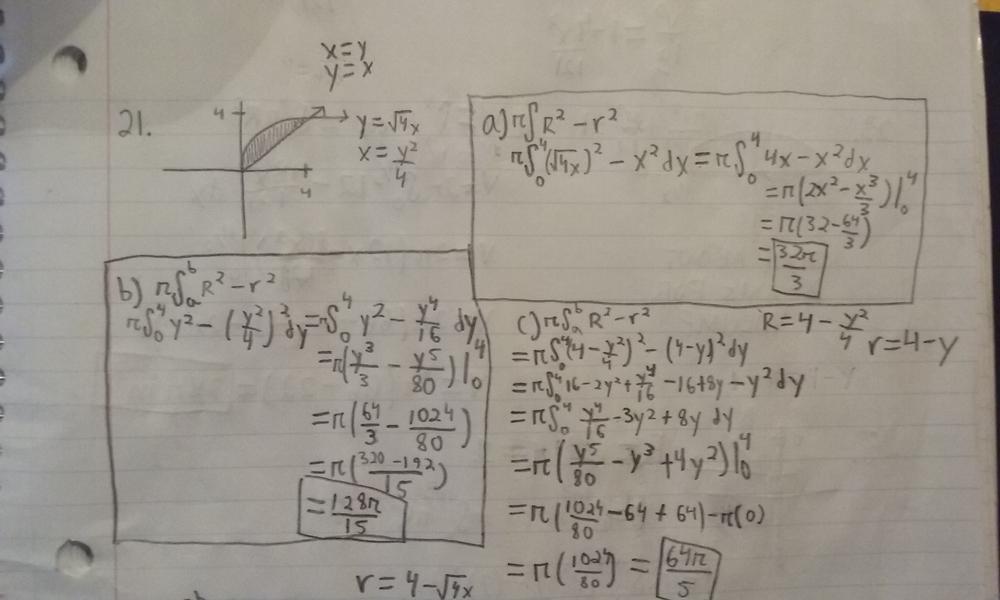 x=y
y=x
21.
4
4
y=√4x
x=y²/4
a) π∫R²-r²
π∫₀⁴(√4x)²-x²dx=π∫₀⁴4x-x²dx
=π(2x²-x³/3)|₀⁴
=π(32-64/3)
=32π/3
b) π∫ₐᵇR²-r²
π∫₀⁴y²-(y²/4)²dy=π∫₀⁴y²-y⁴/16 dy
=π(y³/3-y⁵/80)|₀⁴
=π(64/3-1024/80)
=π(320-192/15)
=128π/15
c) π∫ₐᵇR²-r²
R=4-y²/4
r=4-y
=π∫₀⁴(4-y²/4)²-(4-y)²dy
=π∫₀⁴16-2y²+y⁴/16-16+8y-y²dy
=π∫₀⁴y⁴/16-3y²+8y dy
=π(y⁵/80-y³+4y²)|₀⁴
=π(1024/80-64+64)-π(0)
=π(1024/80)=64π/5
r=4-√4x